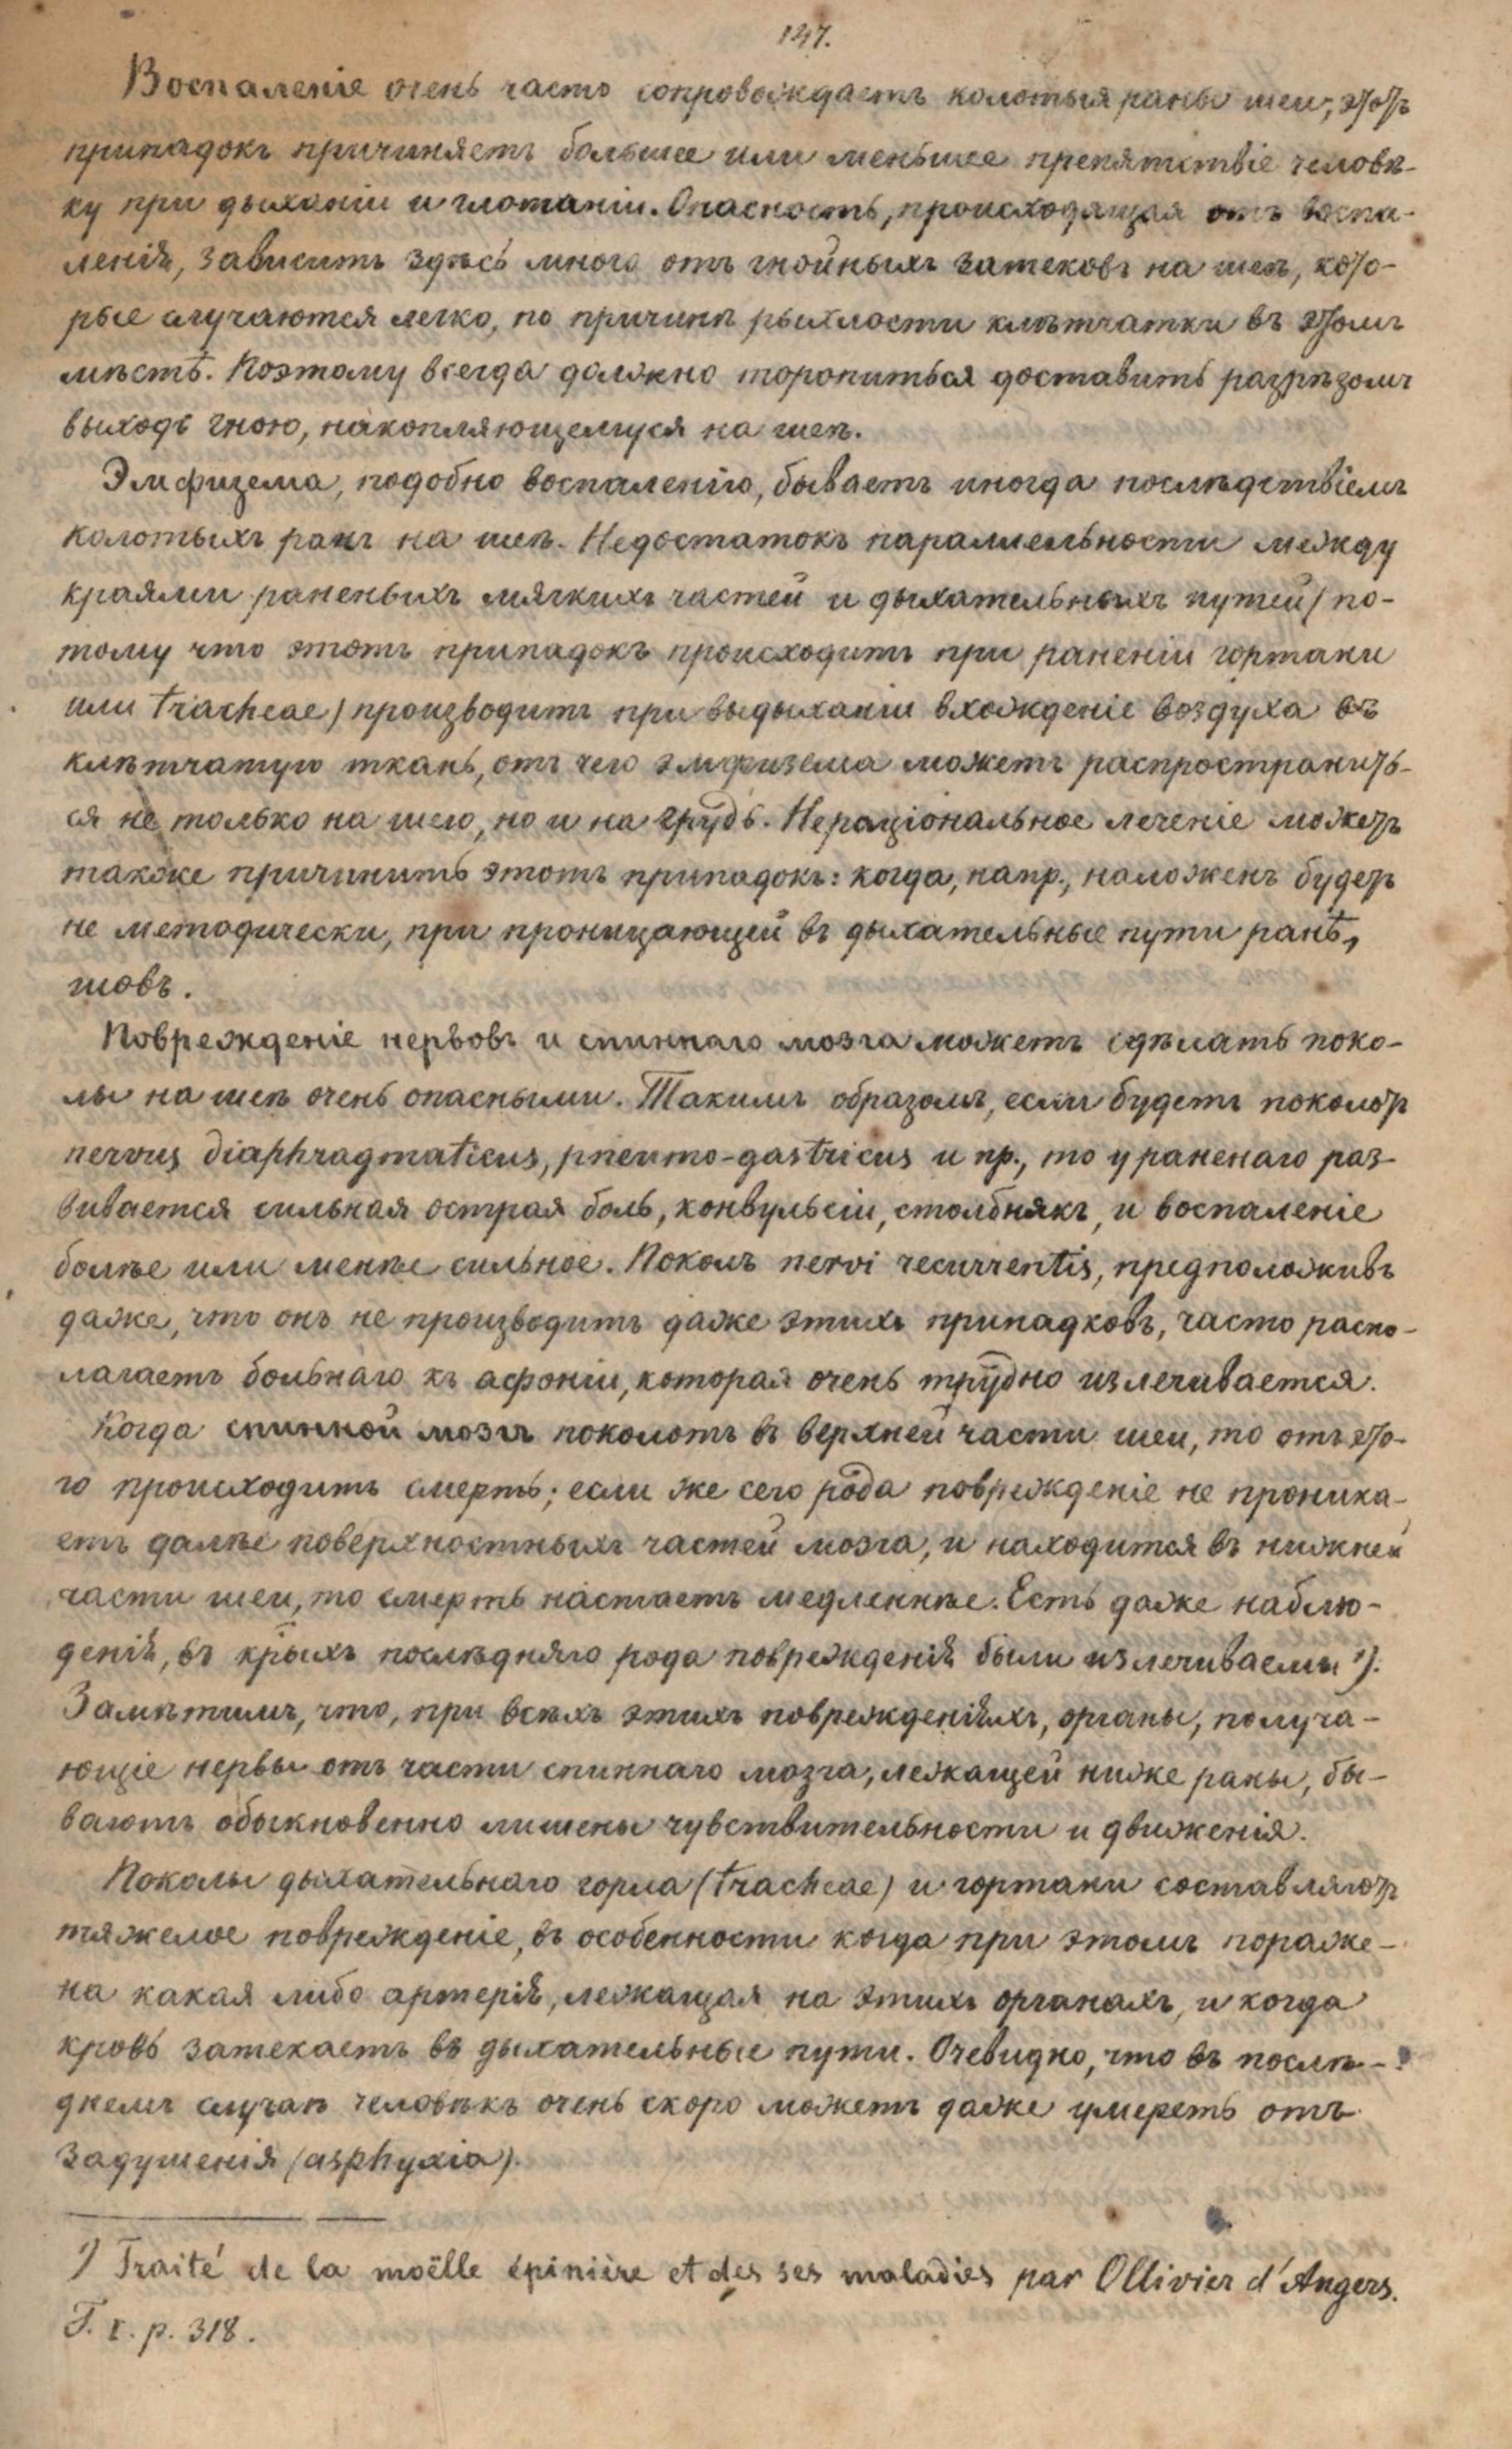 147.
Воспаленіе очень часто сопровождаетъ колотыя раны шеи; этотъ
припадокъ причиняетъ большее или меньшее препятствіе человѣ-
ку при дыханіи и глотаніи. Опасность, происходящая отъ воспа-
ленія, зависитъ здѣсь много отъ гнойныхъ затековъ на шеѣ, кото-
рые случаются легко, по причинѣ рыхлости клѣтчатки въ этомъ
мѣстѣ. Поэтому всегда должно торопиться доставить разрѣзомъ
выходъ гною, накопляющемуся на шеѣ.
Эмфизема, подобно воспаленію, бываетъ иногда послѣдствіемъ
колотыхъ ранъ на шеѣ. Недостатокъ параллельности между
краями раненыхъ мягкихъ частей и дыхательныхъ путей (по-
тому что этотъ припадокъ происходитъ при раненіи гортани
или tracheae) производитъ при выдыханіи вхожденіе воздуха въ
клѣтчатую ткань, отъ чего эмфизема можетъ распространить-
ся не только на шею, но и на грудь. Нераціональное леченіе можетъ
также причинить этотъ припадокъ: когда, напр., наложенъ будетъ
не методически, при проницающей въ дыхательные пути ранѣ,
шовъ.
Поврежденіе нервовъ и спиннаго мозга можетъ сдѣлать поко-
лы на шеѣ очень опасными. Такимъ образомъ, если будетъ поколотъ
nervus diaphragmaticus, pneumo-gastricus и пр., то у раненаго раз-
вивается сильная острая боль, конвульсіи, столбнякъ, и воспаленіе
болѣе или менѣе сильное. Поколъ nervi recurrentis, предположивъ
даже, что онъ не производитъ даже этихъ припадковъ, часто распо-
лагаетъ больнаго къ афоніи, которая очень трудно излечивается.
Когда спинной мозгъ поколотъ въ верхней части шеи, то отъ это-
го происходитъ смерть; если же сего рода поврежденіе не проника-
етъ далѣе поверхностныхъ частей мозга, и находится въ нижней
части шеи, то смерть настаетъ медленнѣе. Есть даже наблю-
денія, въ крыхъ послѣдняго рода поврежденія были излечиваемы 1).
Замѣтимъ, что, при всѣхъ этихъ поврежденіяхъ, органы, получа-
ющіе нервы отъ части спиннаго мозга, лежащей ниже раны, бы-
ваютъ обыкновенно лишены чувствительности и движенія.
Поколы дыхательнаго горла (tracheae) и гортани составляютъ
тяжелое поврежденіе, въ особенности когда при этомъ пораже-
на какая либо артерія, лежащая на этихъ органахъ, и когда
кровь затекаетъ въ дыхательные пути. Очевидно, что въ послѣ-
днемъ случаѣ человѣкъ очень скоро можетъ даже умереть отъ
задушенія (asphyxia).
1) Traité de la moëlle épinière et des ses maladies par Ollivier d'Angers.
T. I. p. 318.